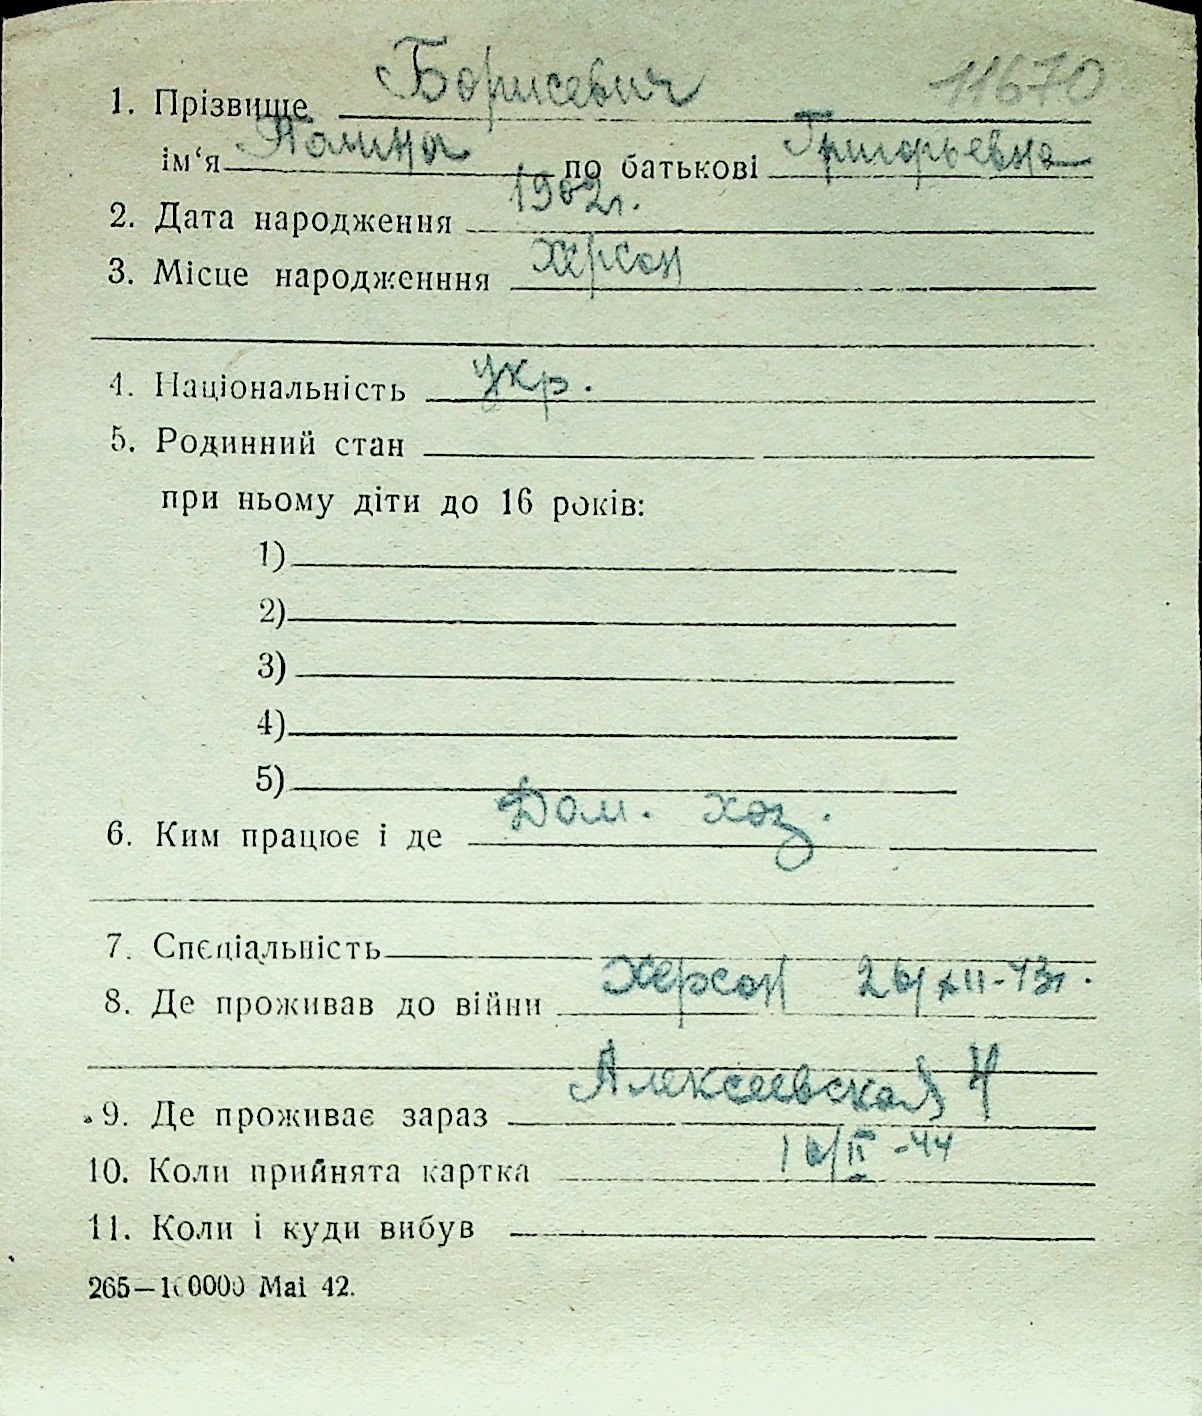 11670
1. Прізвище Борисевич
ім‘я Полина по батькові Григорьевна
2. Дата народження 1902г.
3. Місце народженння Херсон
4. Національність укр.
5. Родинний стан
при ньому діти до 16 років:
1)
2)
3)
4)
5)
6. Ким працює і де Дом. хоз.
7. Спеціальність
8. Де проживав до війни Херсон 26/XII-43г.
9. Де проживає зараз Алексеевская 4
10. Коли прийнята картка 16/II-44
11. Коли і куди вибув
265—100000 Mai 42.